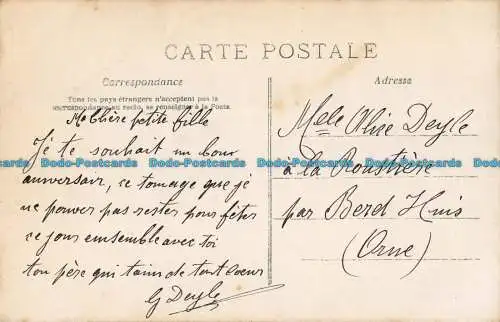 CARTE POSTALE
Correspondance
Tous les pays étrangers n'acceptent pas la
correspondance au recto, se renseigner à la Poste
Adresse
Ma Chère petite fille
Je te souhait un bon
aniversair, ce tomage que je
ne pouver pas rester pour fêter
ce jour emsemble avec toi
ton père qui t'aim de tout coeur
G Deyle
Melle Alise Deyle
à la Roustière
par Berd Huis
(Orne)
Todo-Postcards Todo-Postcards Todo-Postcards Todo-Postcards